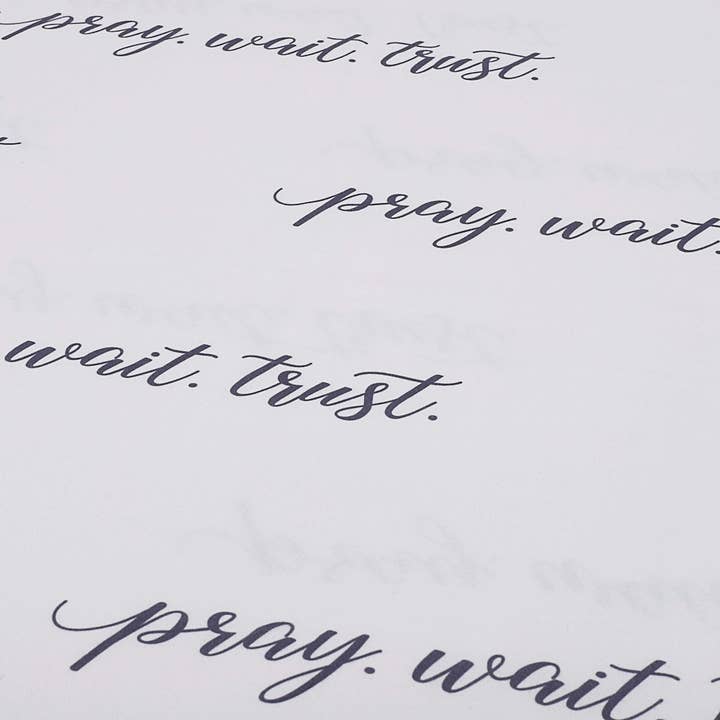 pray. wait. trust.
pray. wait.
wait. trust.
pray. wait.